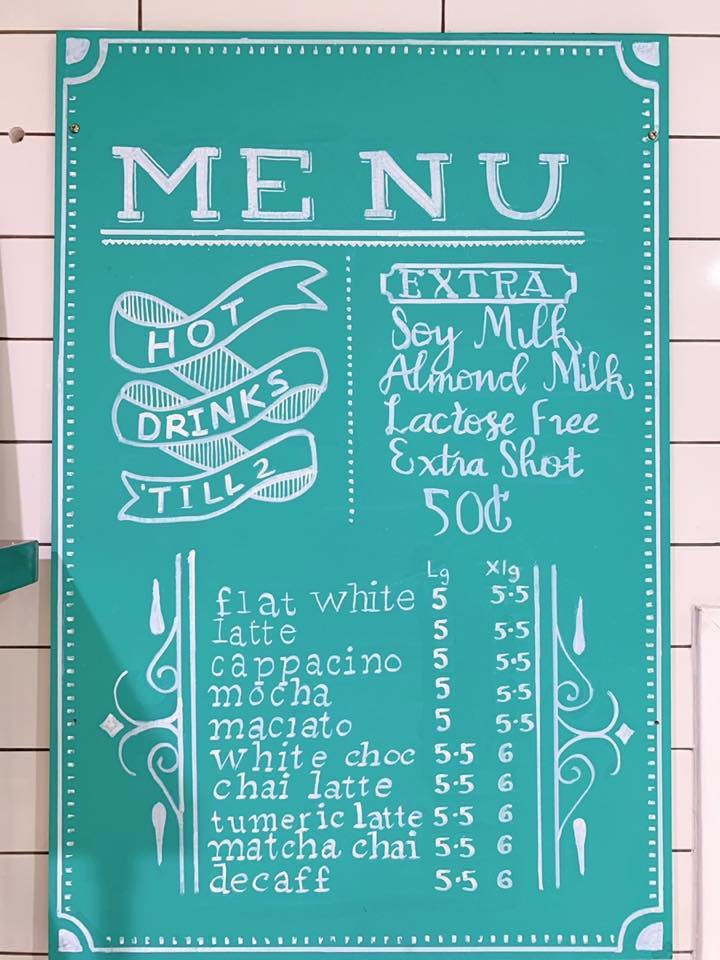 MENU
HOT
DRINKS
'TILL 2
EXTRA
Soy Milk
Almond Milk
Lactose Free
Extra Shot
50¢
Lg Xlg
flat white 5 5.5
latte 5 5.5
cappacino 5 5.5
mocha 5 5.5
maciato 5 5.5
white choc 5.5 6
chai latte 5.5 6
tumeric latte 5.5 6
matcha chai 5.5 6
decaff 5.5 6